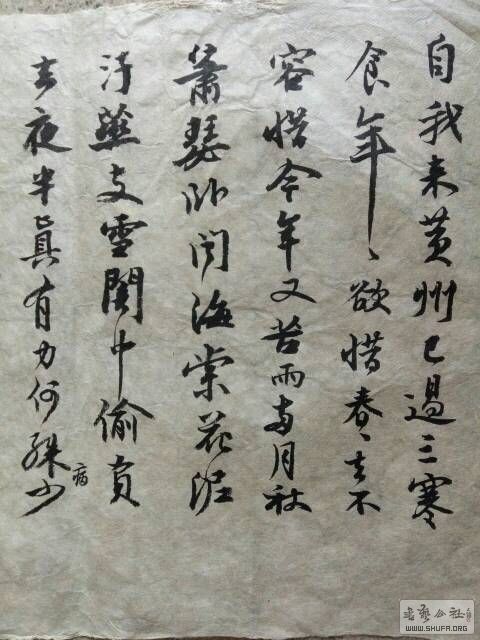 自我来黄州已過三寒
食年〻欲惜春〻去不
容惜今年又苦雨两月秋
蕭瑟卧聞海棠花泥
汙燕支雪闇中偷負
去夜半真有力何殊少
病
書藝公社
WWW.SHUFA.ORG